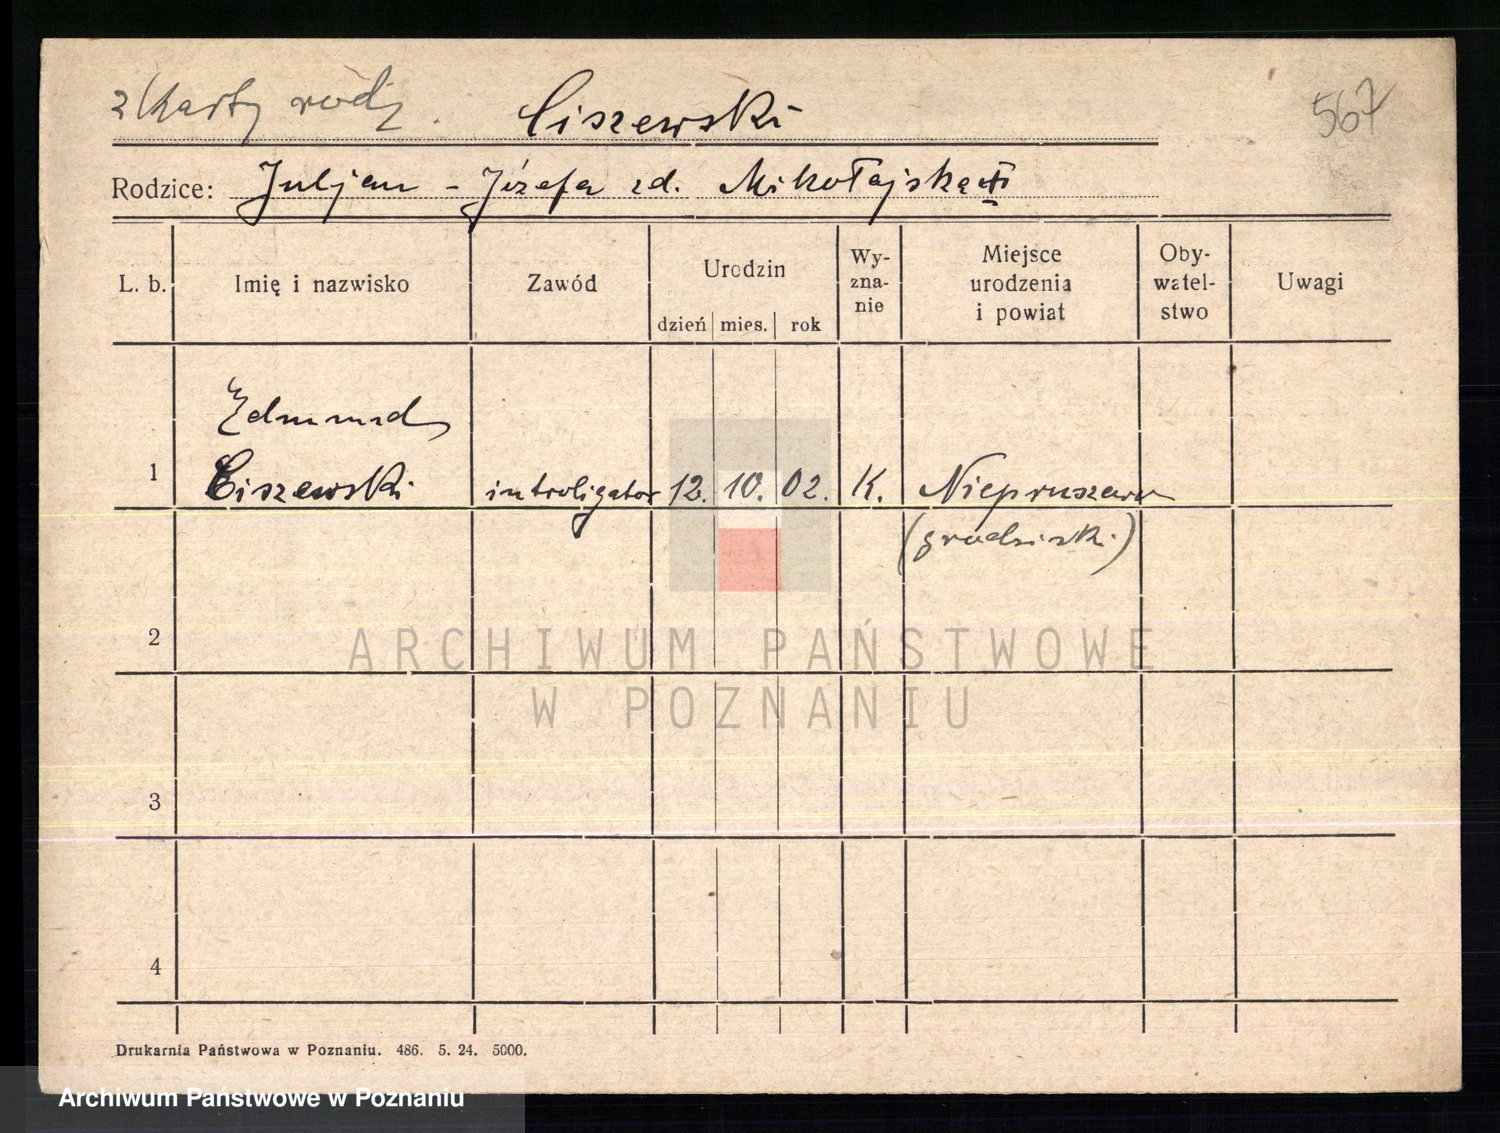 z Karty rodz. Ciszewski 567
Rodzice: Juljan - Józefa zd. Mikołajska
L. b. Imię i nazwisko Zawód Urodzin Wy-zna-nie Miejsce urodzenia i powiat Oby-watel-stwo Uwagi
dzień mies. rok
Edmund
1 Ciszewski introligator 12. 10. 02. K. Niepruszewo
(grodziski)
2
ARCHIWUM PAŃSTWOWE
W POZNANIU
3
4
Drukarnia Państwowa w Poznaniu. 486. 5. 24. 5000.
Archiwum Państwowe w Poznaniu